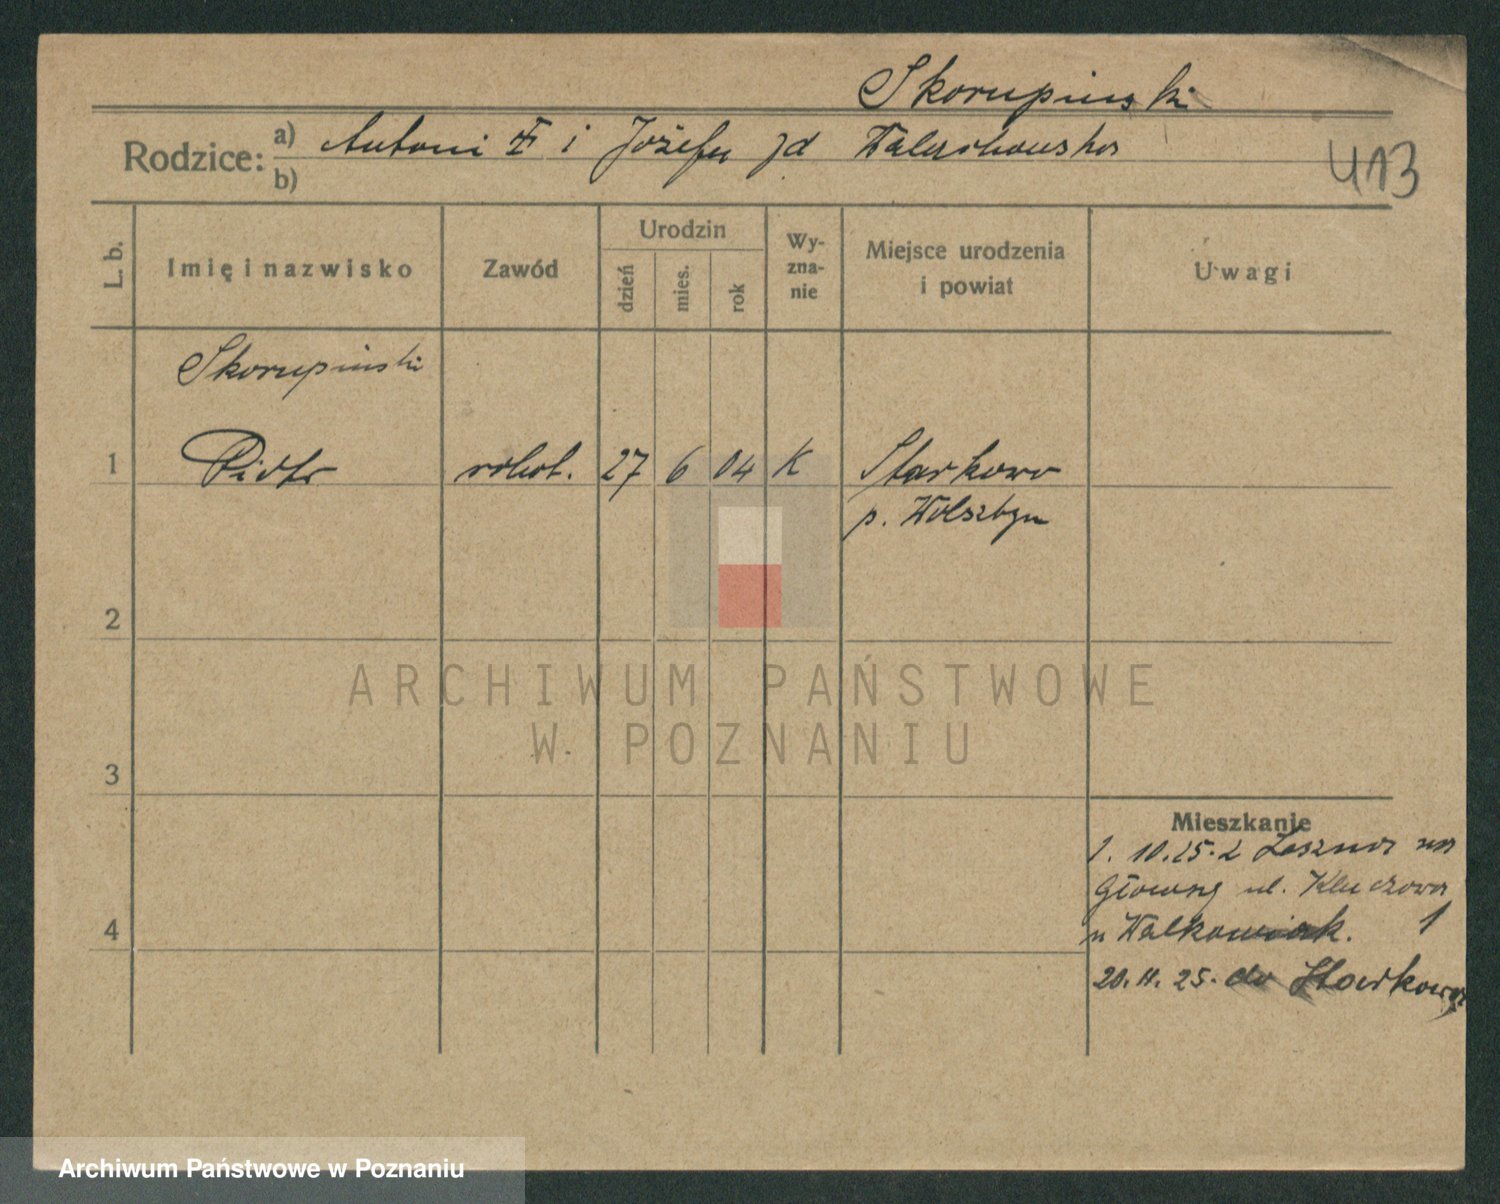 Skorupinski
Rodzice: a) Antoni i Józefa zd
b)
413
L. b.
Imię i nazwisko
Zawód
Urodzin
dzień
mies.
rok
Wy-
zna-
nie
Miejsce urodzenia
i powiat
Uwagi
Skorupinski
1 Piotr robot. 27 6 04 K Starkowo
p. Wolsztyn
2
3
4
Mieszkanie
1. 10. 25. z Leszna na
Główną ul. Kluczowa
u Walkowiak. 1
20. 11. 25. do Starkowa
ARCHIWUM PAŃSTWOWE
W POZNANIU
Archiwum Państwowe w Poznaniu